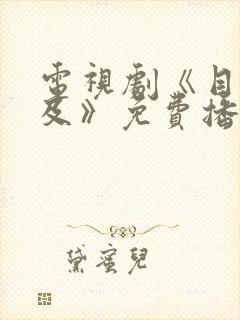 電視劇《目
及》免費播
黛蜜兒